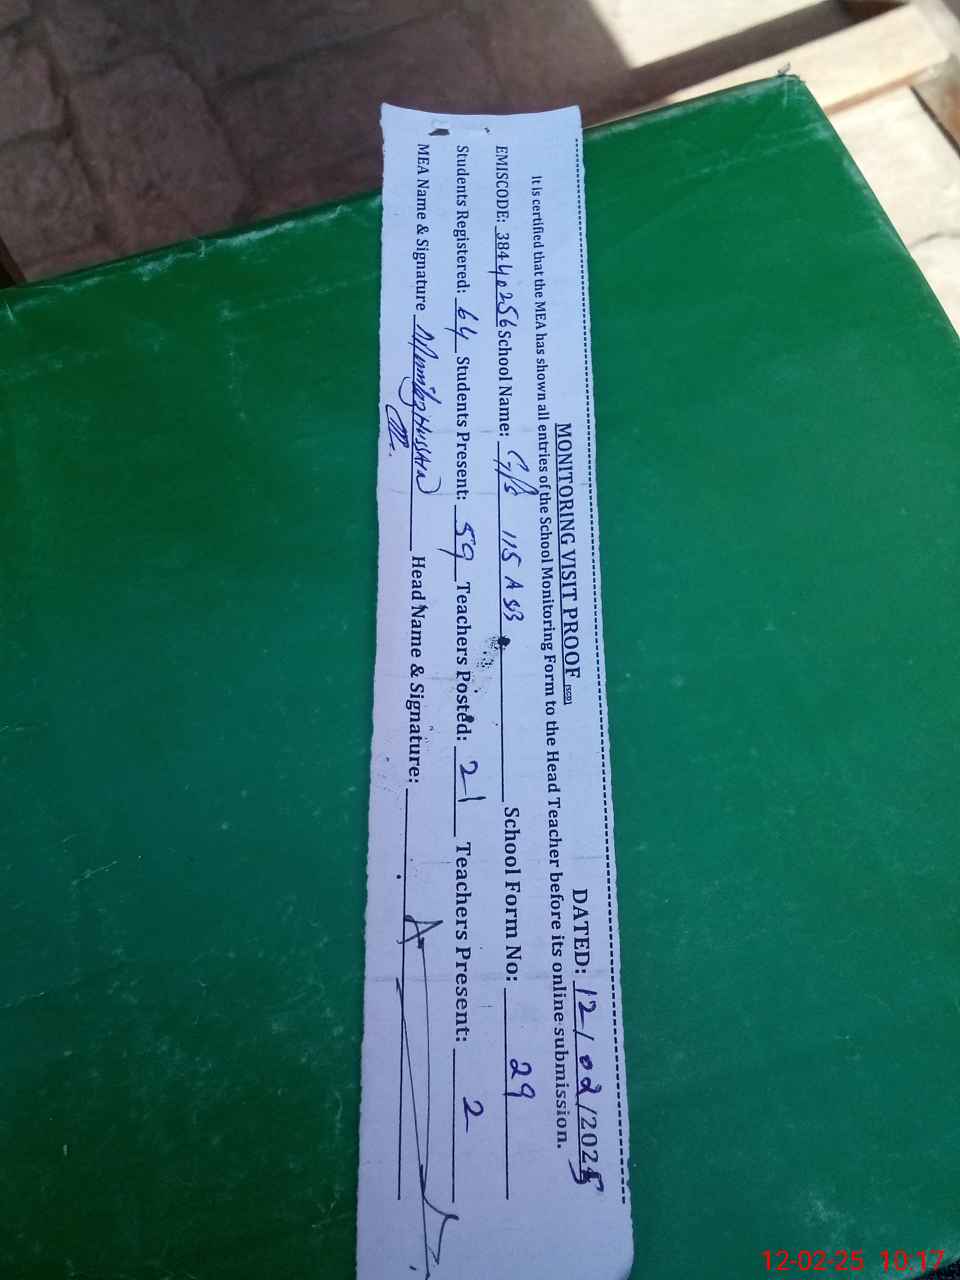 MONITORING VISIT PROOF [SCD] DATED: 12/02/2025
It is certified that the MEA has shown all entries of the School Monitoring Form to the Head Teacher before its online submission.
EMISCODE: 38440256 School Name: G/S 115 A SB School Form No: 29
Students Registered: 64 Students Present: 59 Teachers Posted: 21 Teachers Present: 2
MEA Name & Signature Hussain Head Name & Signature:
12-02-25 10:17